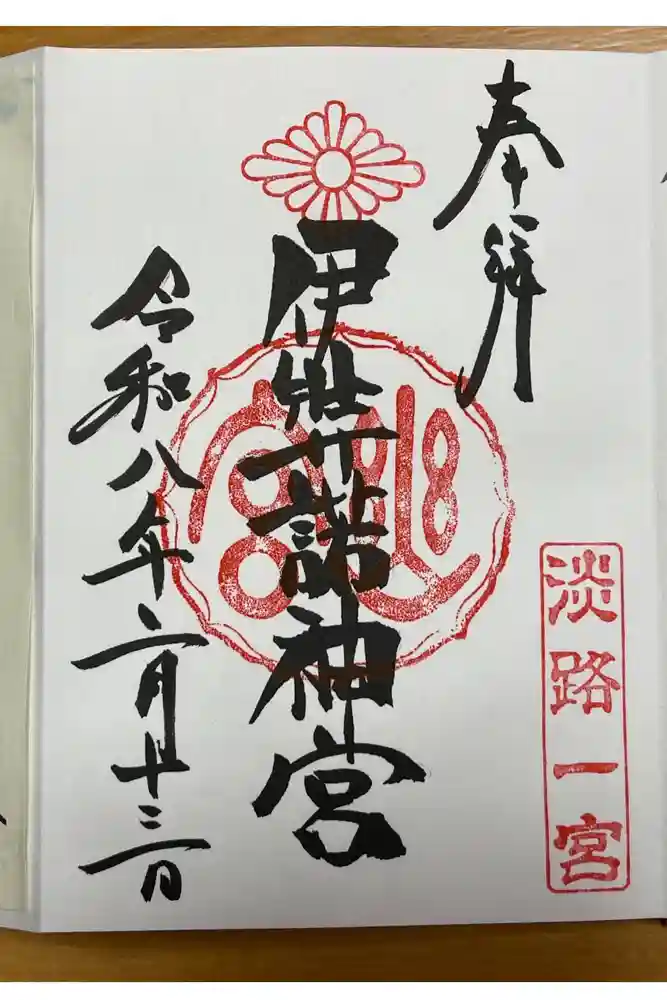 奉拝
淡路一宮
伊弉諾神宮
令和八年二月十三日